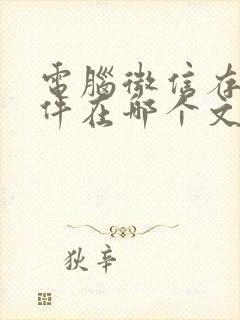 電腦微信存
件在哪个文
狄辛